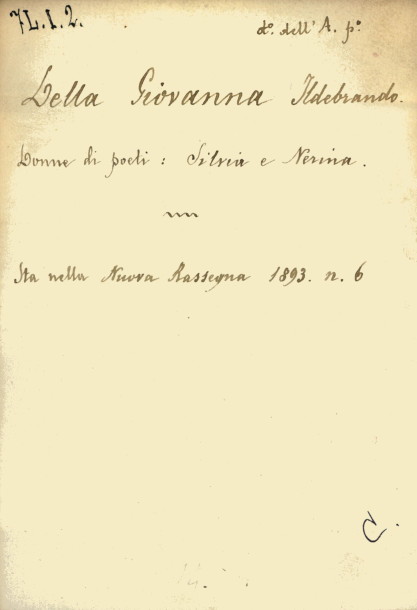 7L.I.2.
d.º dell'A. p.º
Della Giovanna Ildebrando.
Donne di poeti : Silvia e Nerina.
Sta nella Nuova Rassegna 1893. n. 6
C.
14.